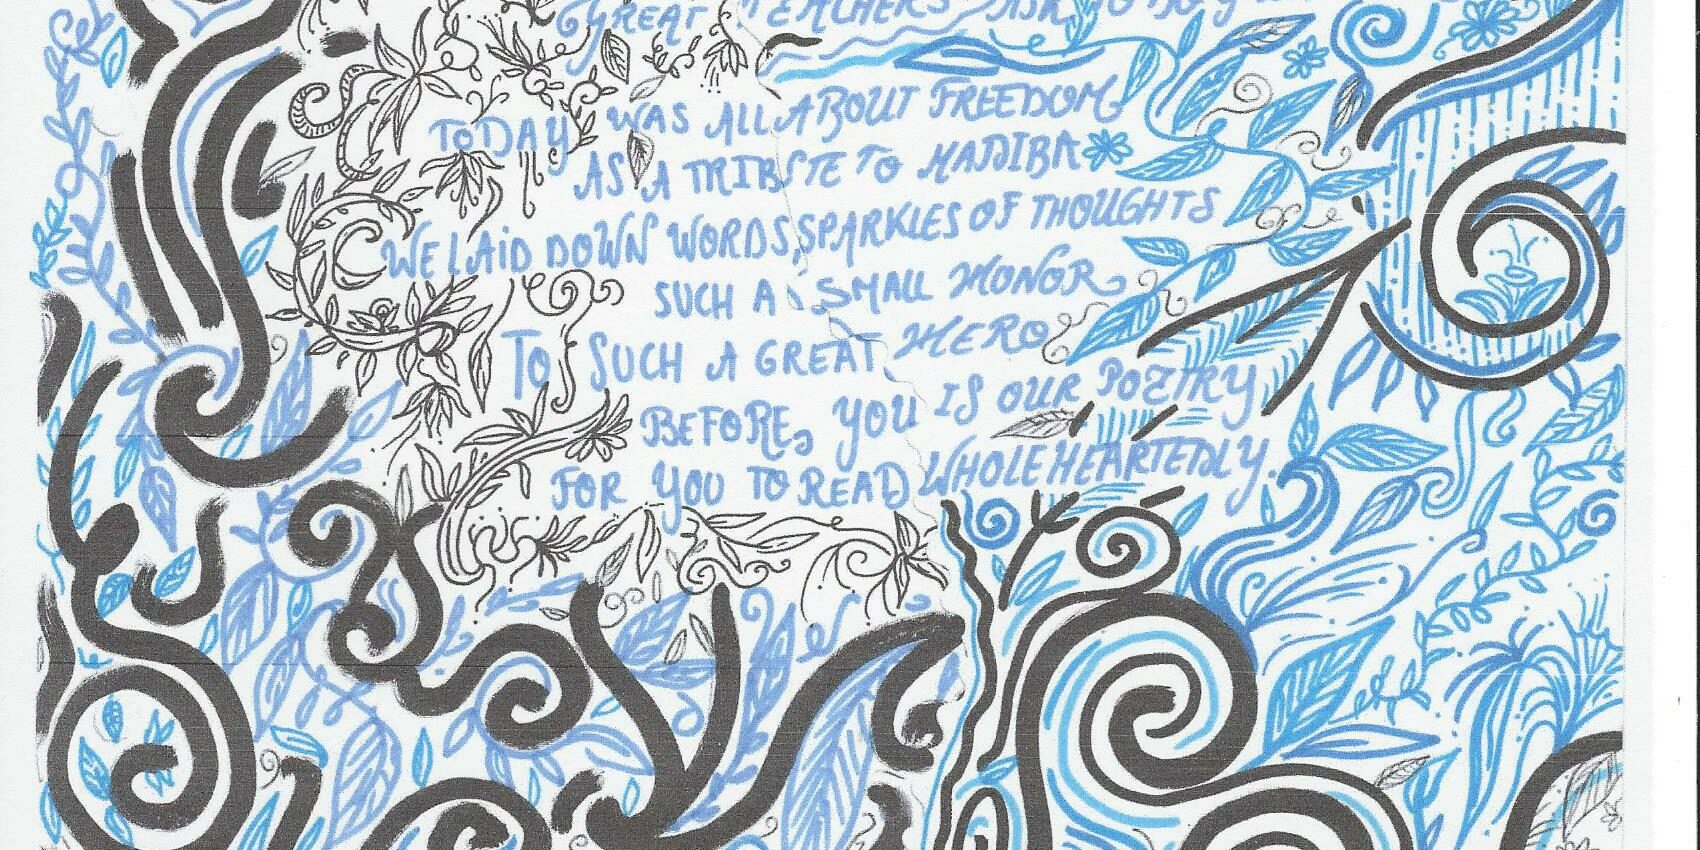 GREAT TEACHERS ASK
TODAY WAS ALL ABOUT FREEDOM
AS A TRIBUTE TO MADIBA
WE LAID DOWN WORDS, SPARKLES OF THOUGHTS
SUCH A SMALL HONOR
TO SUCH A GREAT HERO
BEFORE, YOU IS OUR POETRY
FOR YOU TO READ WHOLEHEARTEDLY.